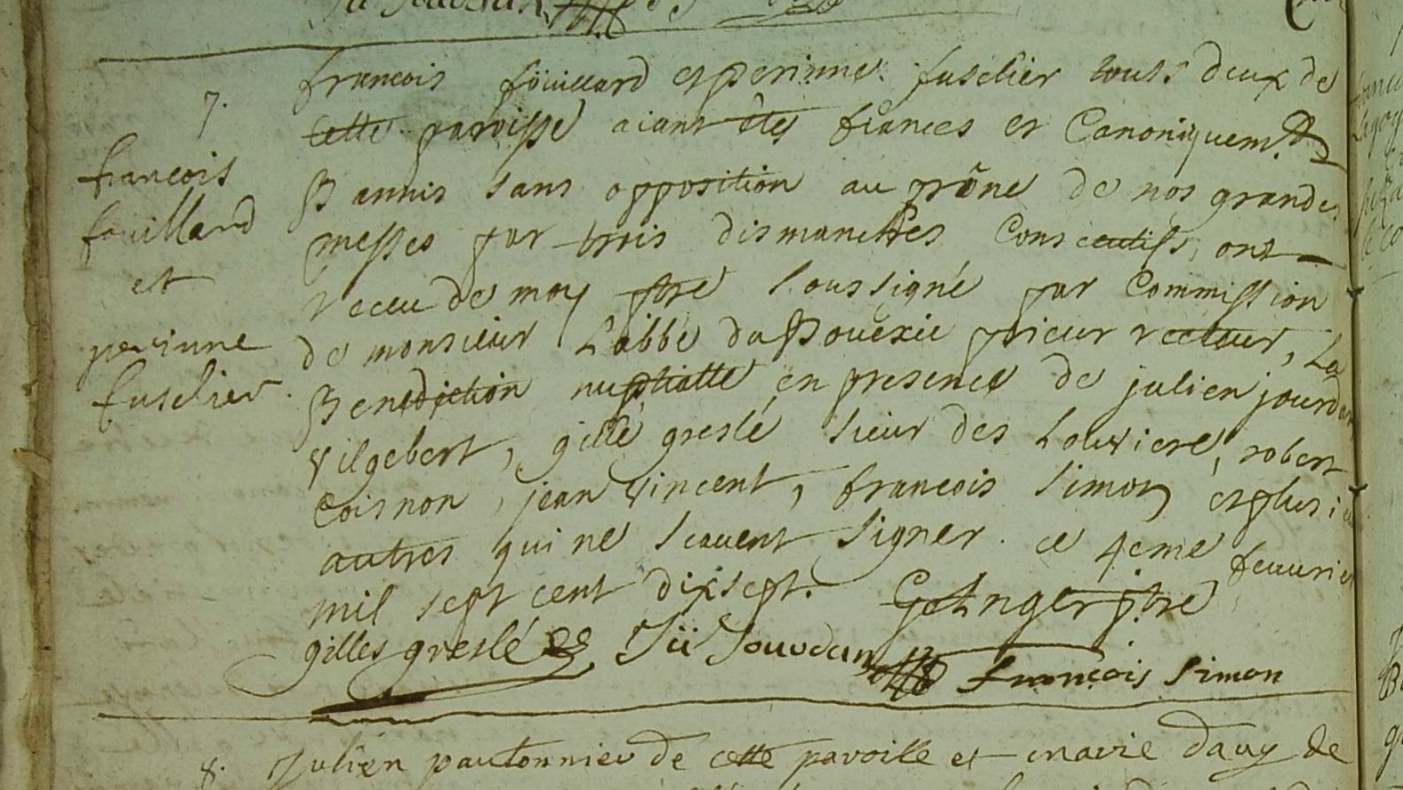 7.
francois
fouillard
et
perinne
fuselier.
francois foüillard et perinne fuselier tous deux de
cette paroisse aiant étés fiances et Canoniquem.t
Bannis sans opposition au prône de nos grandes
messes par trois dismanches Consecutifs, ont
receu de moy ptre soussigné par Commission
de monsieur Labbé da Boüexic prieur recteur, La
Benediction nuptialle en presence de julien jourdan
vilgebert, gille greslé sieur des Louviere, robert
Coisnon, jean vincent, francois simon et plusieurs
autres qui ne scavent signer. ce 4eme feuvrier
mil sept cent dixsept. ptre
gilles greslé Jü Jourdan François Simon
8. Julien pautonnier de cette paroisse et marie dauy de